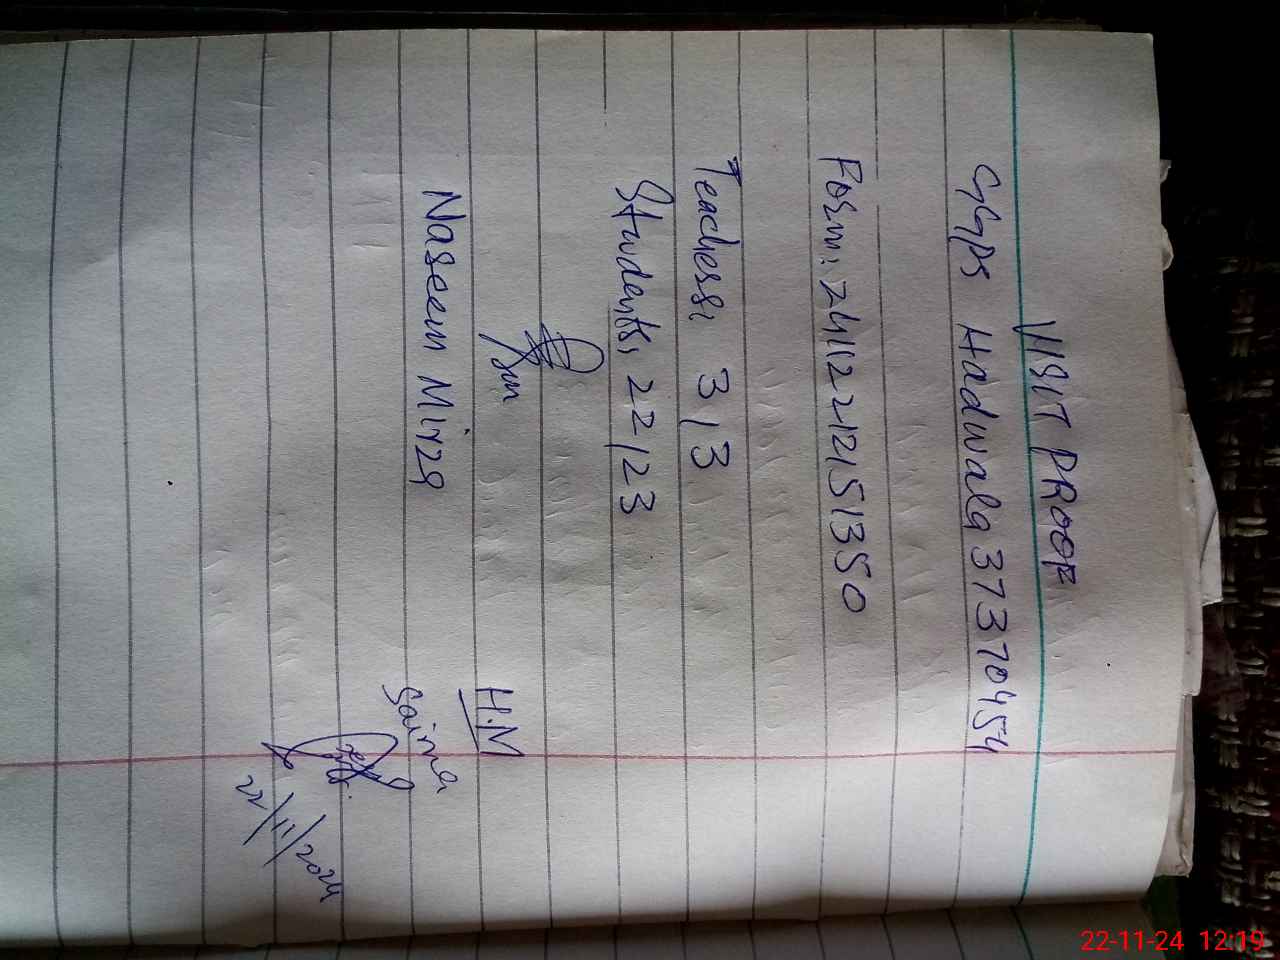 VISIT PROOF
GGPS Hadwala 37370454
Form: 24112212151350
Teachers, 3/3
Students, 22/23
Naseem Mirza
H.M
Saima
22/11/2024
22-11-24 12:19